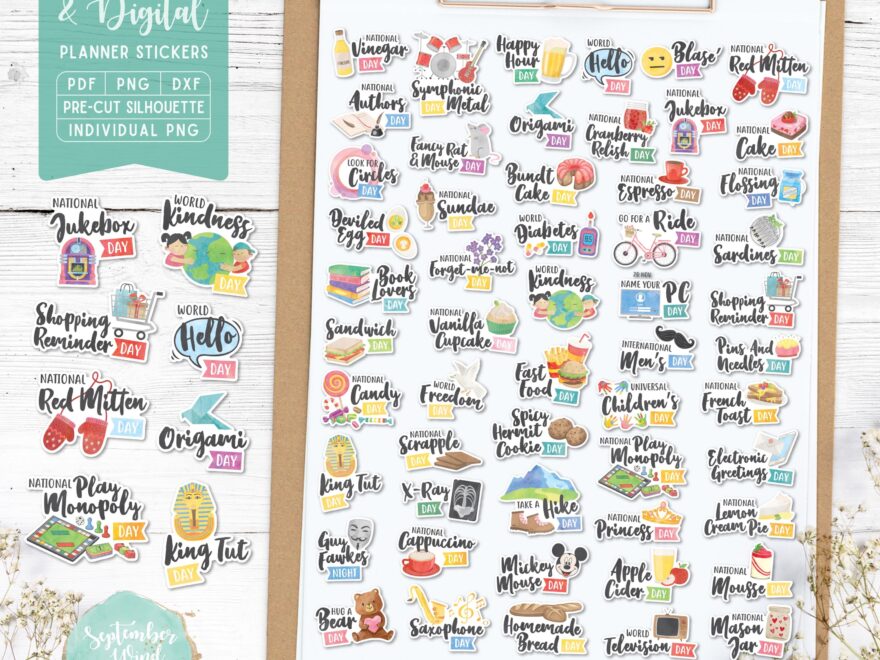 & Digital
PLANNER STICKERS
PDF | PNG | DXF
PRE-CUT SILHOUETTE
INDIVIDUAL PNG
NATIONAL
Jukebox
DAY
WORLD
Kindness
DAY
Shopping
Reminder
DAY
WORLD
Hello
DAY
NATIONAL
Red Mitten
DAY
Origami
DAY
NATIONAL
Play
Monopoly
DAY
King Tut
DAY
September
Wind
NATIONAL
Vinegar
DAY
Symphonic
Metal
DAY
Happy
Hour
DAY
WORLD
Hello
DAY
Blasé
DAY
NATIONAL
Red Mitten
DAY
NATIONAL
Authors
DAY
Origami
DAY
NATIONAL
Cranberry
Relish
DAY
NATIONAL
Jukebox
DAY
NATIONAL
Cake
DAY
LOOK FOR
Circles
DAY
Fancy Rat
& Mouse
DAY
Bundt
Cake
DAY
NATIONAL
Espresso
DAY
NATIONAL
Flossing
DAY
Deviled
Egg
DAY
NATIONAL
Sundae
DAY
WORLD
Diabetes
DAY
GO FOR A
Ride
DAY
NATIONAL
Sardines
DAY
Book
Lovers
DAY
NATIONAL
Forget-me-not
DAY
WORLD
Kindness
DAY
20 NOV
NAME YOUR
PC
DAY
Shopping
Reminder
DAY
Sandwich
DAY
NATIONAL
Vanilla
Cupcake
DAY
Fast
Food
DAY
INTERNATIONAL
Men's
DAY
Pins And
Needles
DAY
NATIONAL
Candy
DAY
WORLD
Freedom
DAY
Spicy
Hermit
Cookie
DAY
UNIVERSAL
Children's
DAY
NATIONAL
French
Toast
DAY
King Tut
DAY
NATIONAL
Scrapple
DAY
TAKE A
Hike
DAY
NATIONAL
Play
Monopoly
DAY
Electronic
Greetings
DAY
X-Ray
DAY
Guy
Fawkes
NIGHT
NATIONAL
Cappuccino
DAY
Mickey
Mouse
DAY
NATIONAL
Princess
DAY
NATIONAL
Lemon
Cream Pie
DAY
HUG A
Bear
DAY
Saxophone
DAY
Homemade
Bread
DAY
Apple
Cider
DAY
NATIONAL
Mousse
DAY
WORLD
Television
DAY
NATIONAL
Mason
Jar
DAY